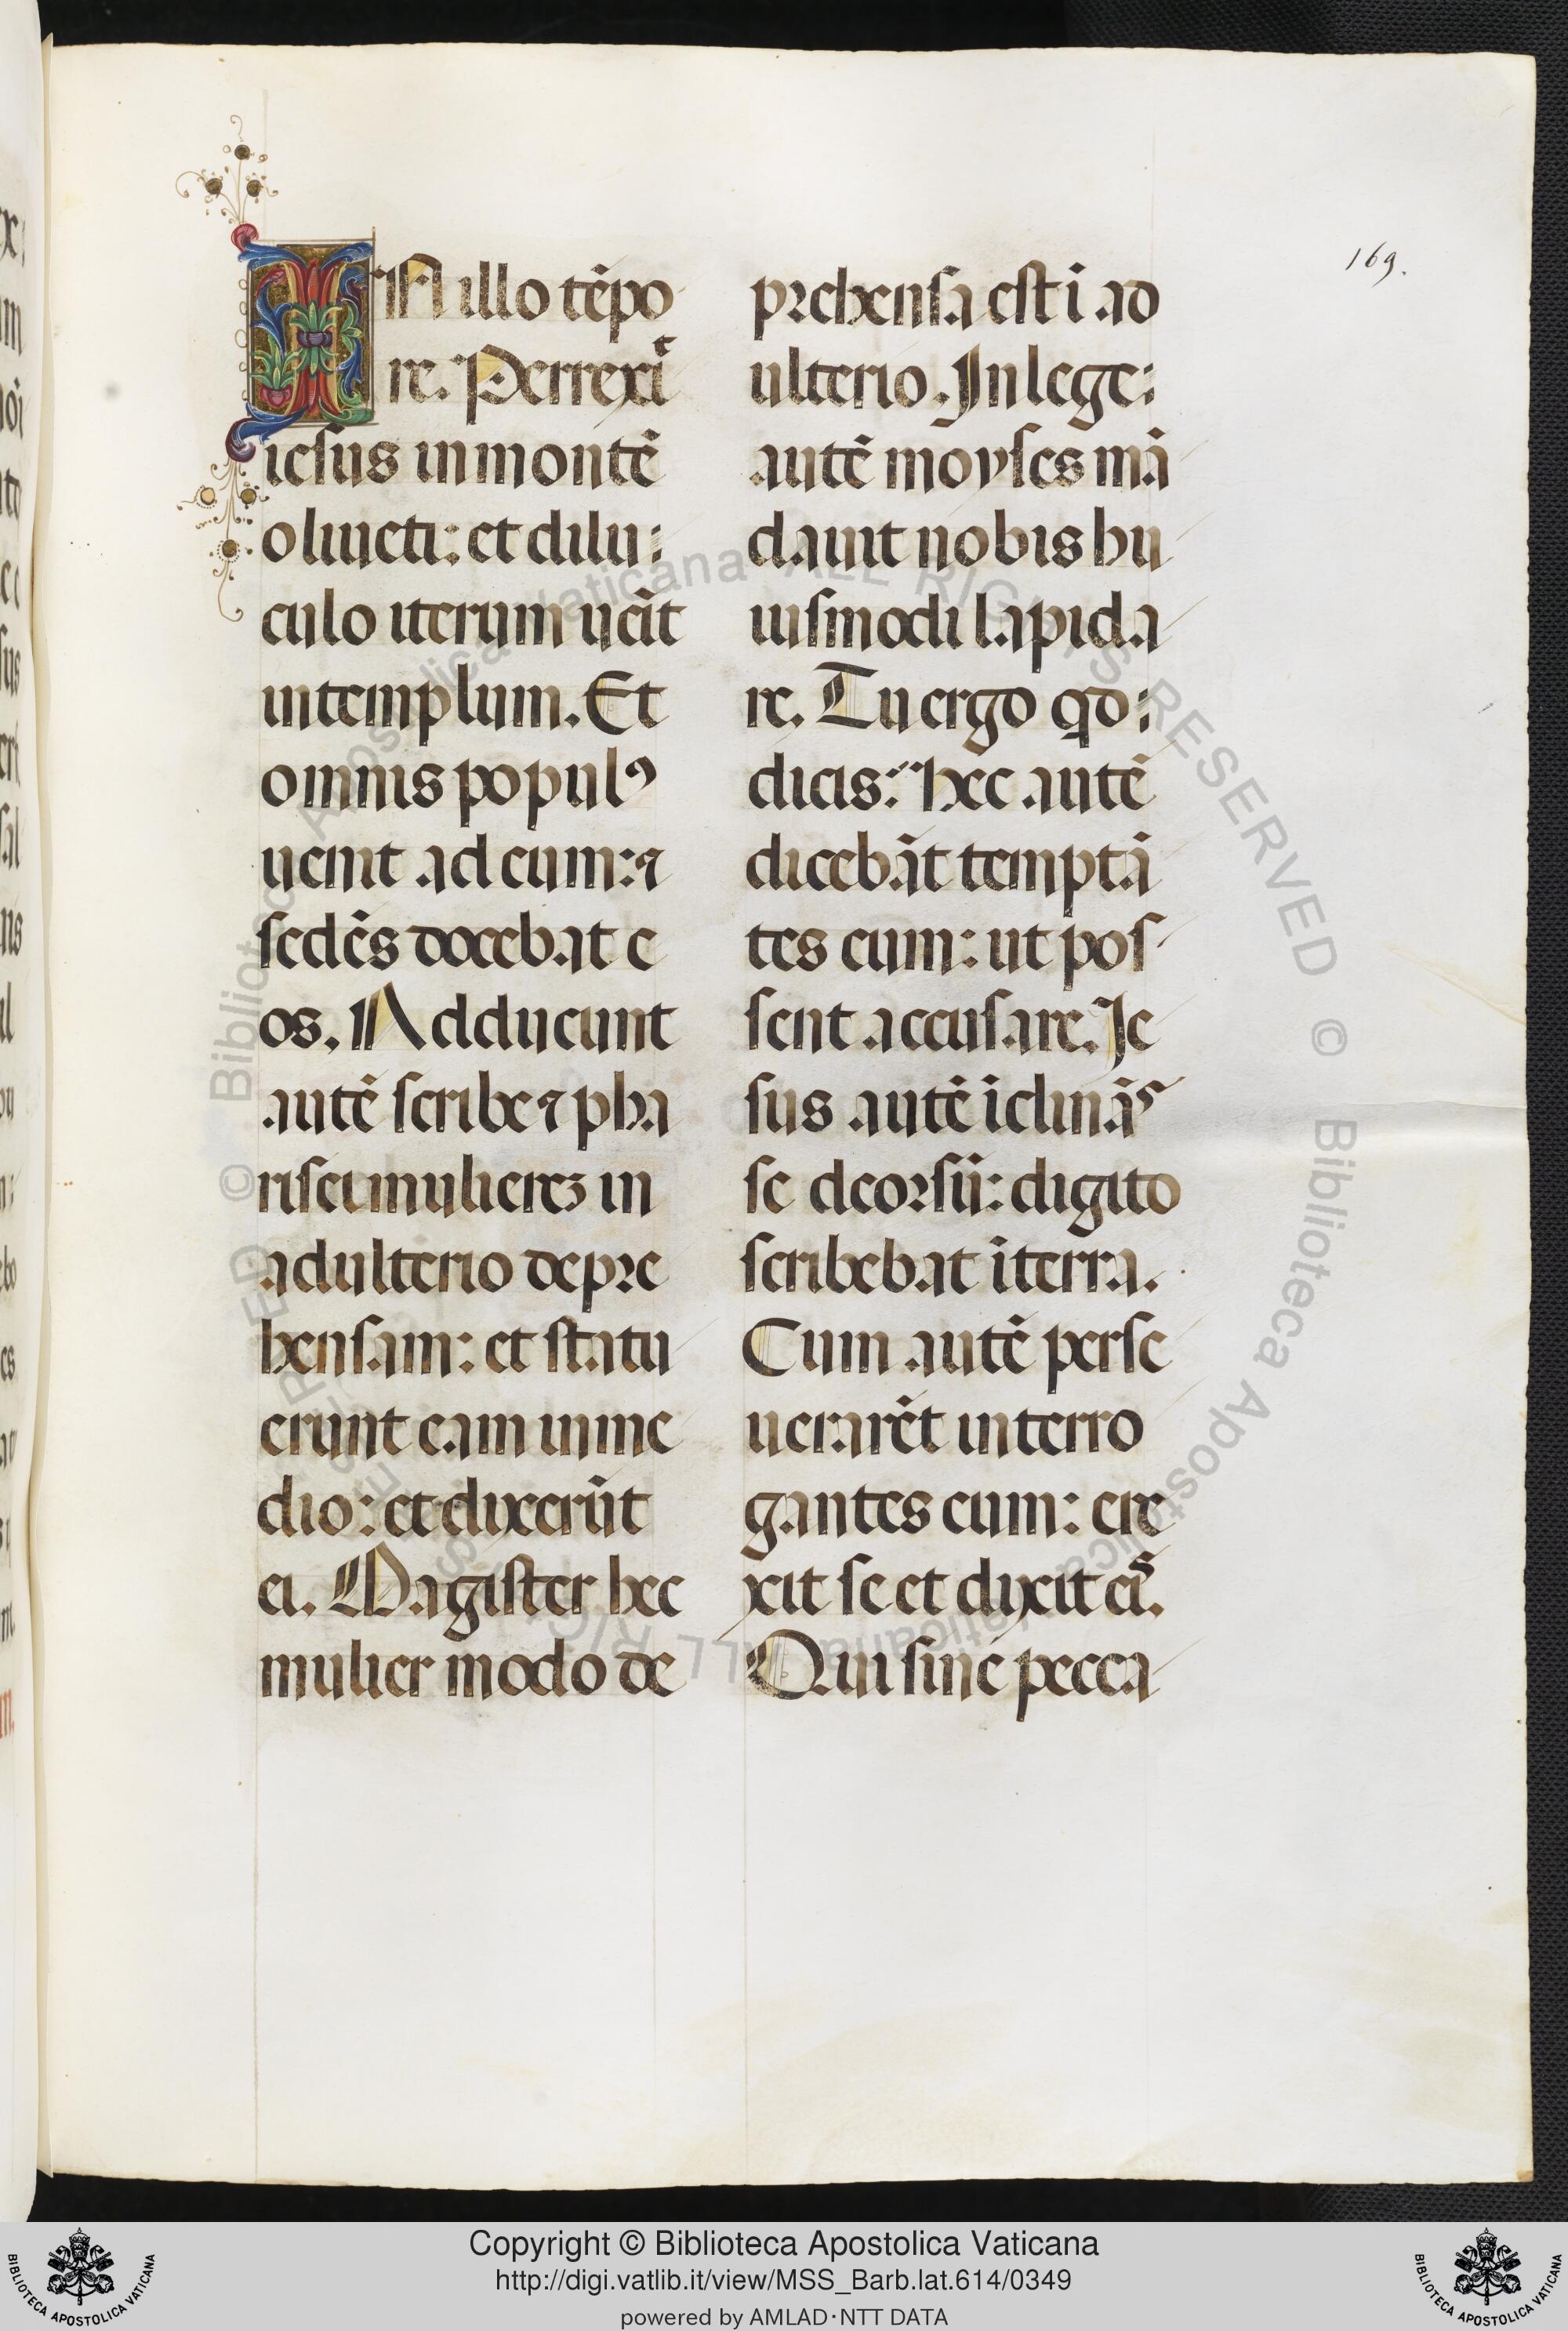 169.
IN illo tēpo
re. Perrexit
iesus in montē
oliueti: et dilu:
culo iterum uēit
in templum. Et
omnis populꝰ
uenit ad eum: ⁊
sedēs docebat e
os. Adducunt
autē scribe ⁊ pha
risei mulierēʒ in
adulterio depre
hensam: et statu
erunt eam in me
dio: et dixerūt
ei. Magister hec
mulier modo de
prehensa est ī ad
ulterio. In lege:
autē moyses mā
dauit nobis hu
iusmodi lapida
re. Tu ergo qd:
dicis: hec autē
dicebāt temptā
tes eum: ut pos
sent accusare. Ie
sus autē īclināˢ
se deorsū: digito
scribebat ī terra.
Cum autē perse
uerarēt interro
gantes eum: ere
xit se et dixit eiˢ.
Qui sine pecca
Copyright © Biblioteca Apostolica Vaticana
http://digi.vatlib.it/view/MSS_Barb.lat.614/0349
powered by AMLAD·NTT DATA
BIBLIOTECA APOSTOLICA VATICANA
BIBLIOTECA APOSTOLICA VATICANA